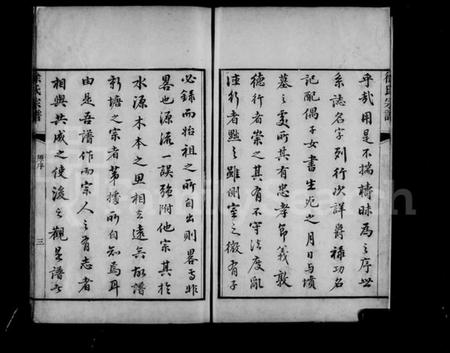 徐氏宗譜
乎哉用是不揣檮昧為之序世
系誌名字列行次詳爵祿功名
記配偶子女書生死之月日与墳
墓之處所其有忠孝節義敦
德行者崇之其有不守法度亂
行者黜之雖側室之微有子
必録而始祖之所自出則畧焉非
畧也源流一誤強附他宗其於
水源木本之思相去遠矣故譜
新塘之宗者第播所自知焉耳
由是吾譜作而宗人之有志者
相與共成之使後之觀是譜者
徐氏宗譜
序
三